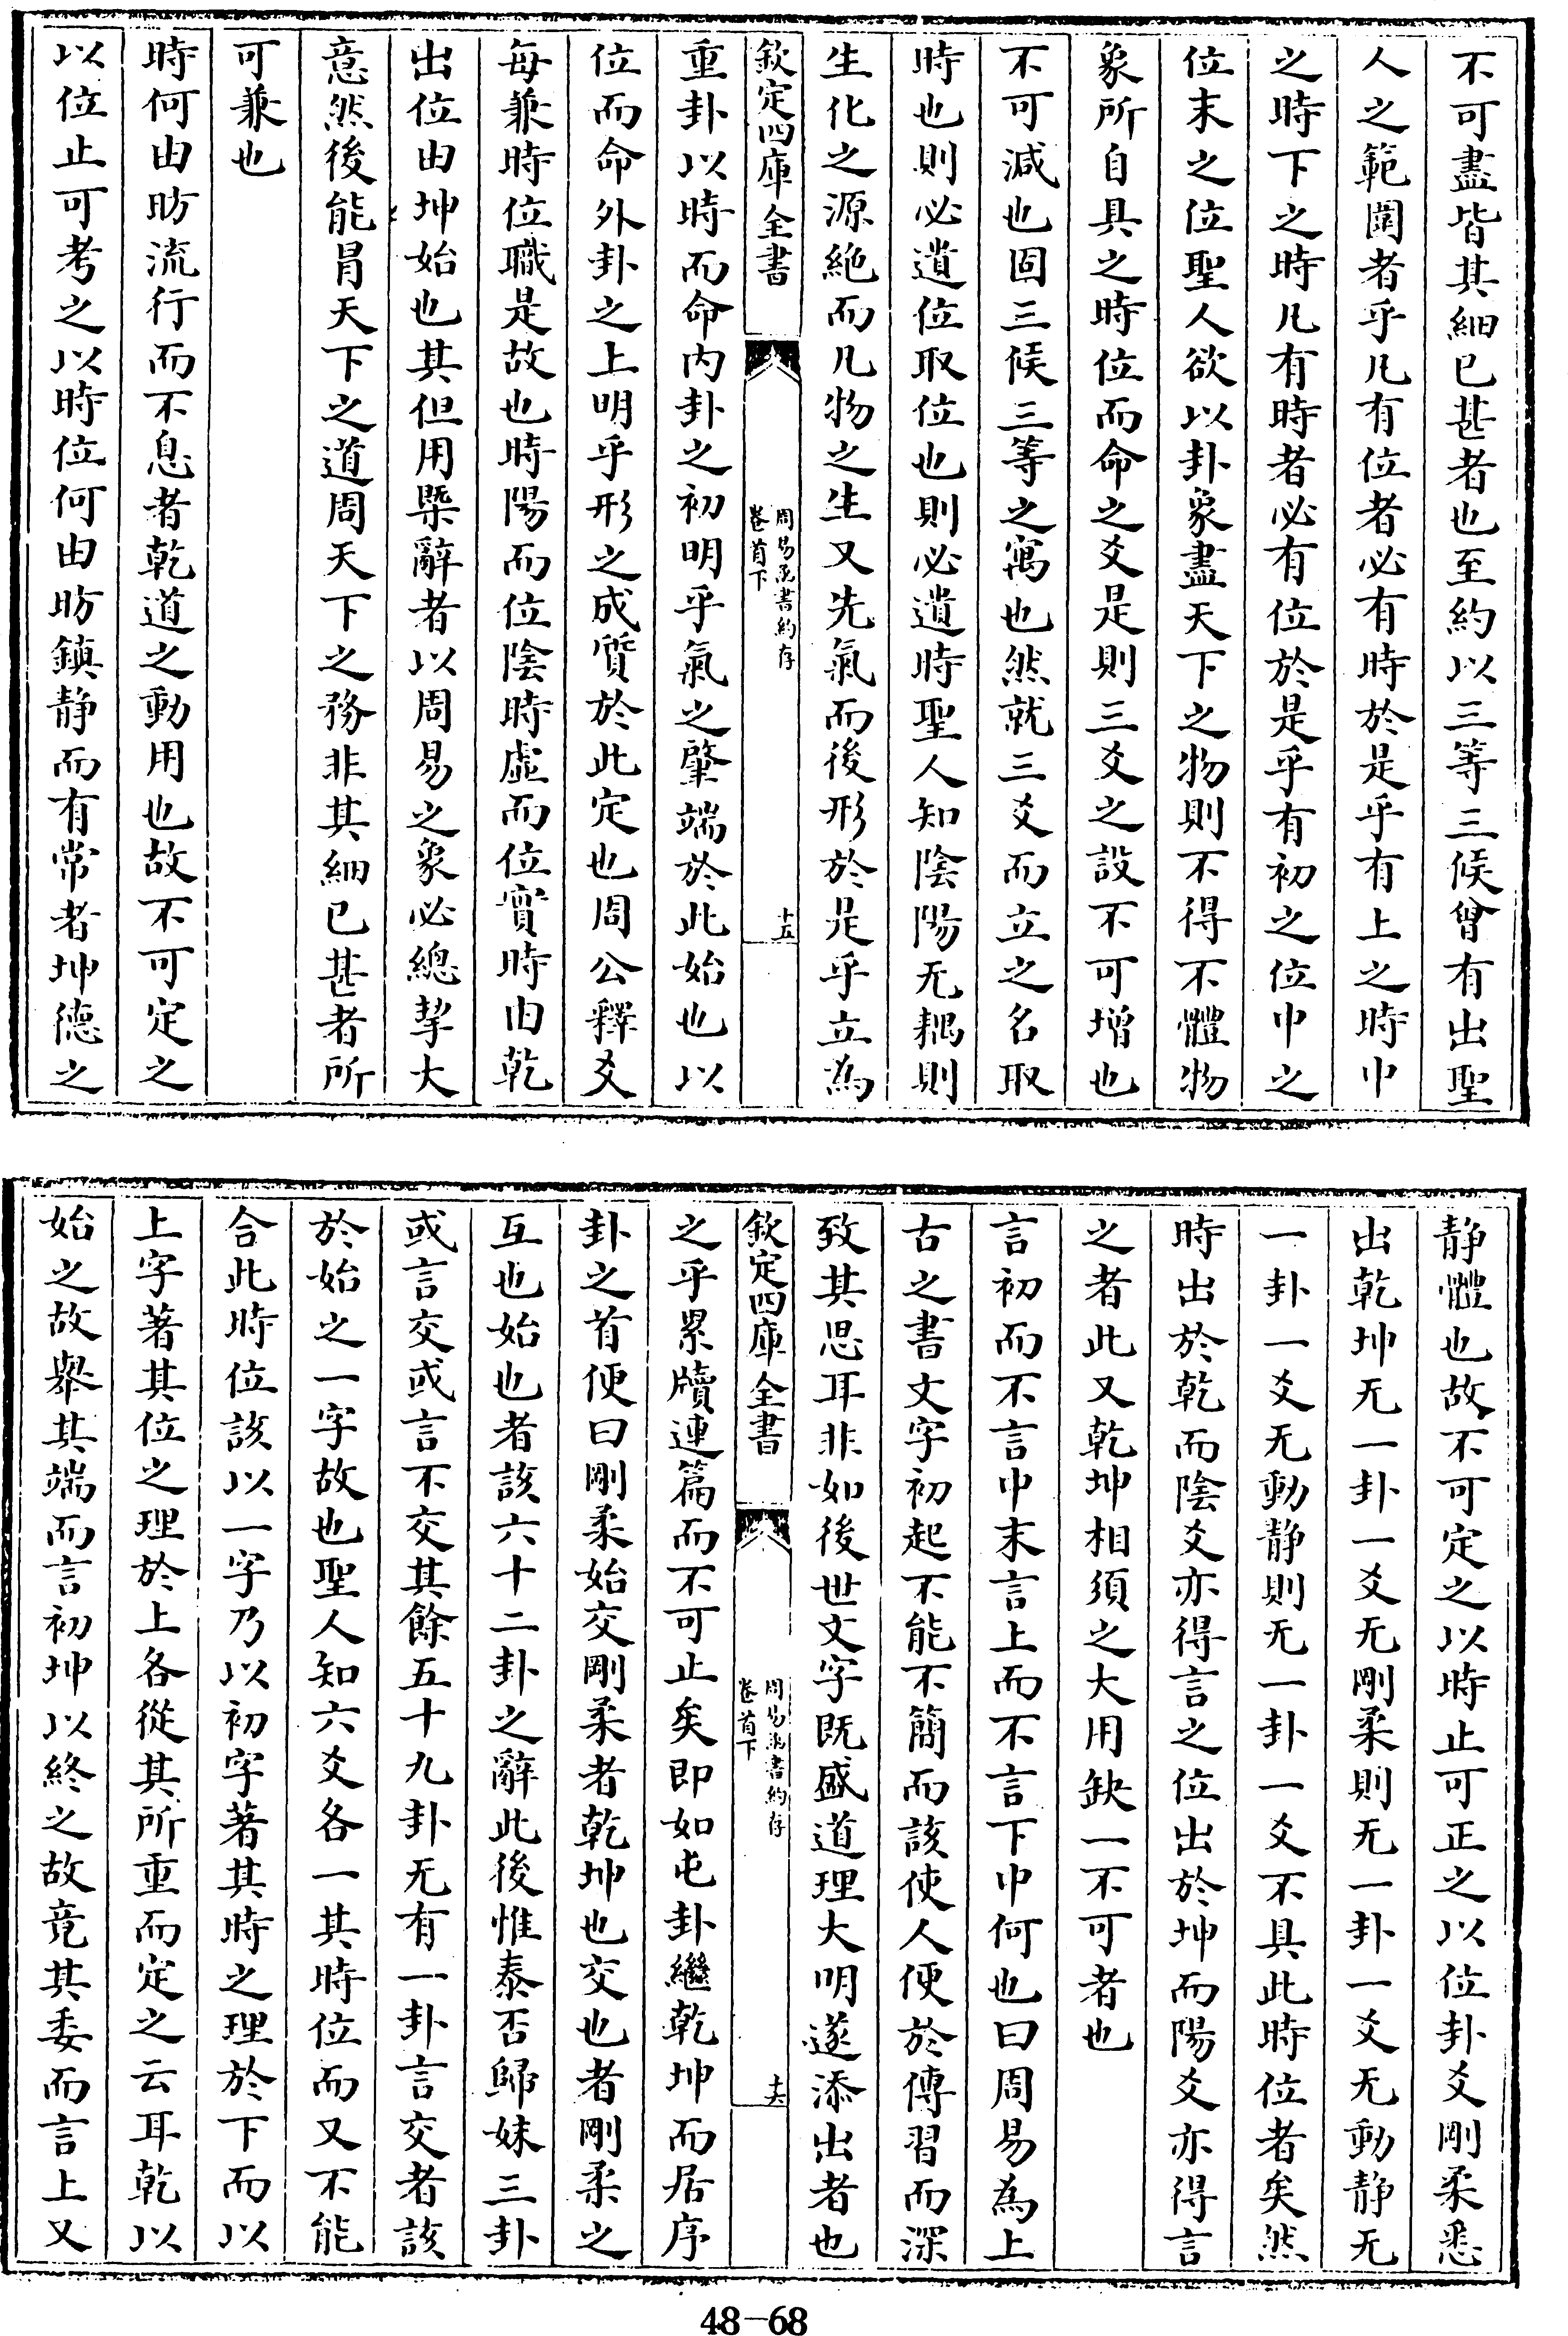 不可盡皆其細已甚者也至約以三等三候曾有出聖
人之範圍者乎凡有位者必有時於是乎有上之時中
之時下之時凡有時者必有位於是乎有初之位中之
位末之位聖人欲以卦象盡天下之物則不得不體物
象所自具之時位而命之爻是則三爻之設不可增也
不可減也固三候三等之寓也然就三爻而立之名取
時也則必遺位取位也則必遺時聖人知陰陽无耦則
生化之源絶而凡物之生又先氣而後形於是乎立為
欽定四庫全書
周易函書約存
卷首下
十五
重卦以時而命内卦之初明乎氣之肇端於此始也以
位而命外卦之上明乎形之成質於此定也周公釋爻
每兼時位職是故也時陽而位陰時虚而位實時由乾
出位由坤始也其但用槩辭者以周易之象必總挈大
意然後能冐天下之道周天下之務非其細已甚者所
可兼也
時何由昉流行而不息者乾道之動用也故不可定之
以位止可考之以時位何由昉鎮静而有常者坤德之
静體也故不可定之以時止可正之以位卦爻剛柔悉
出乾坤无一卦一爻无剛柔則无一卦一爻无動静无
一卦一爻无動静則无一卦一爻不具此時位者矣然
時出於乾而陰爻亦得言之位出於坤而陽爻亦得言
之者此又乾坤相須之大用缺一不可者也
言初而不言中末言上而不言下中何也曰周易為上
古之書文字初起不能不簡而該使人便於傳習而深
致其思耳非如後世文字既盛道理大明遂添出者也
欽定四庫全書
周易函書約存
卷首下
十六
之乎累牘連篇而不可止矣即如屯卦繼乾坤而居序
卦之首便曰剛柔始交剛柔者乾坤也交也者剛柔之
互也始也者該六十二卦之辭此後惟泰否歸妹三卦
或言交或言不交其餘五十九卦无有一卦言交者該
於始之一字故也聖人知六爻各一其時位而又不能
合此時位該以一字乃以初字著其時之理於下而以
上字著其位之理於上各從其所重而定之云耳乾以
始之故舉其端而言初坤以終之故竟其委而言上又
48-68